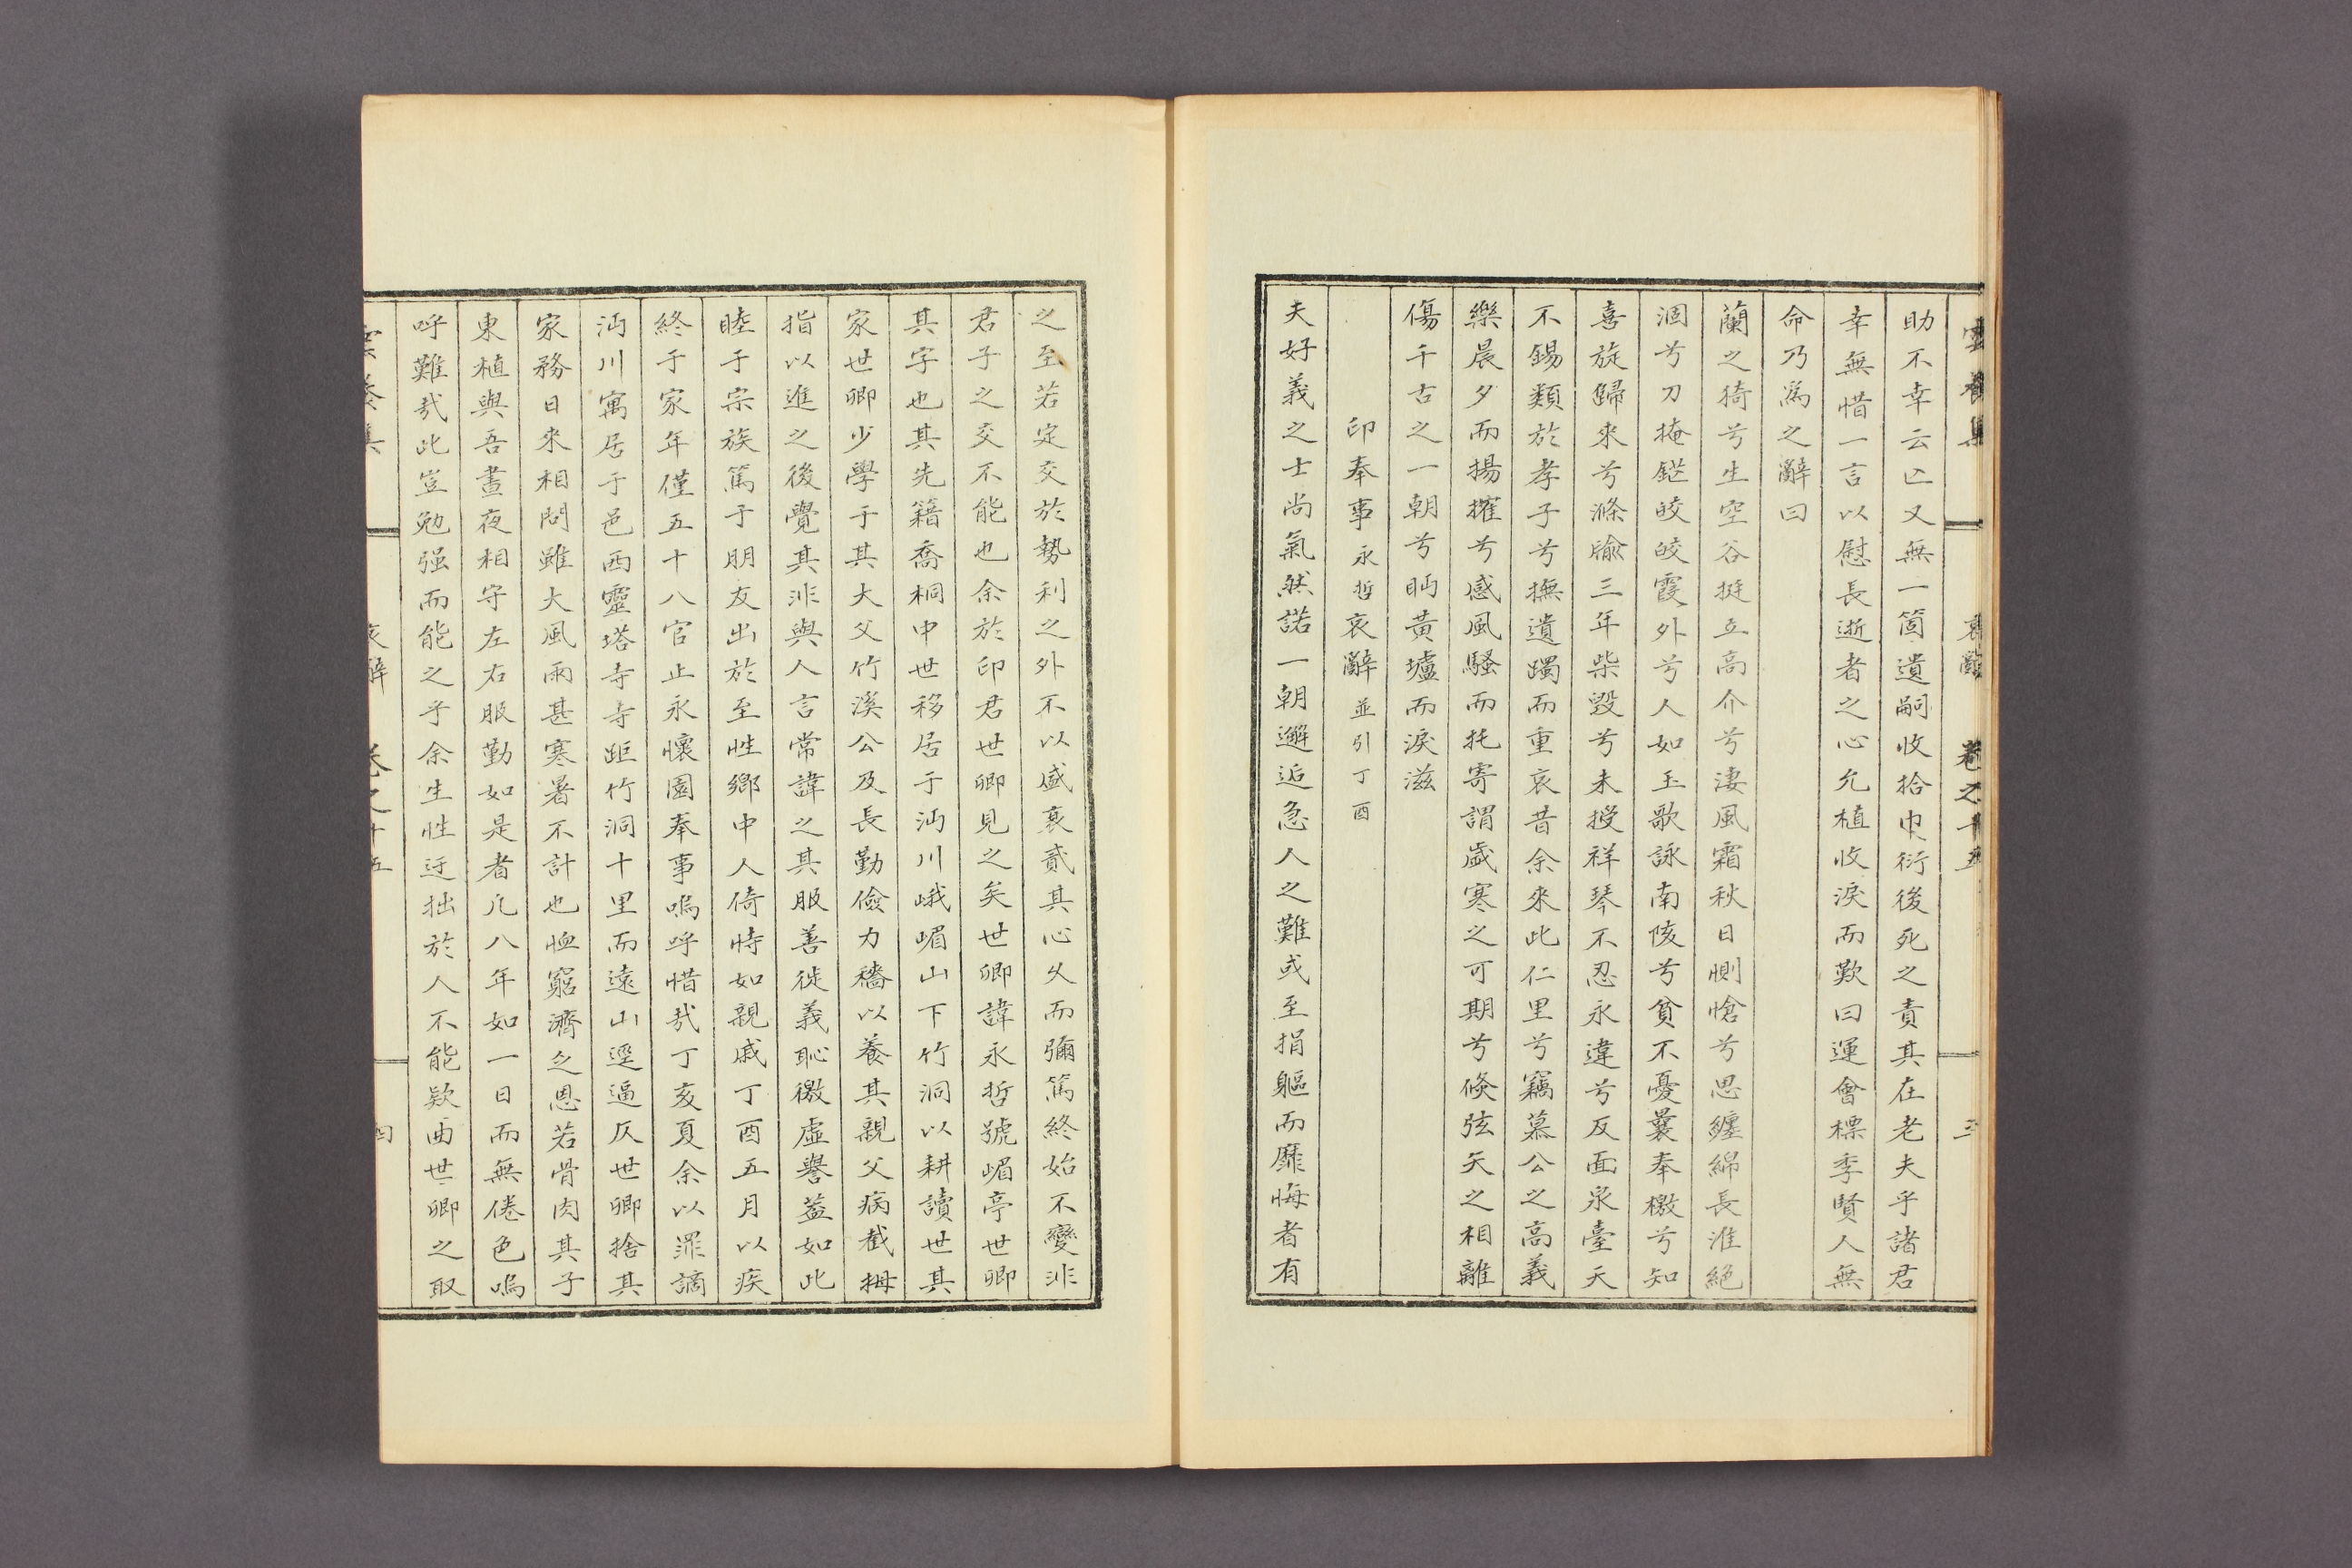 雲養集 哀辭 卷之十五 三
助不幸云亡又無一箇遺嗣收拾巾衍後死之責其在老夫乎諸君
幸無惜一言以慰長逝者之心允植收淚而歎曰運會標季賢人無
命乃爲之辭曰
蘭之猗兮生空谷挺立高介兮淒風霜秋日惻愴兮思纏綿長淮絕
涸兮刀掩鋩皎皎霞外兮人如玉歌詠南陔兮貧不憂曩奉檄兮知
喜旋歸來兮滌牏三年柴毀兮未授祥琴不忍永違兮反面泉臺天
不錫類於孝子兮撫遺躅而重哀昔余來此仁里兮竊慕公之高義
樂晨夕而揚搉兮感風騷而托寄謂歲寒之可期兮倐弦矢之相離
傷千古之一朝兮眄黃壚而淚滋
印奉事永哲哀辭並引丁酉
夫好義之士尚氣然諾一朝邂逅急人之難或至捐軀而靡悔者有
之至若定交於勢利之外不以盛衰貳其心久而彌篤終始不變非
君子之交不能也余於印君世卿見之矣世卿諱永哲號嵋亭世卿
其字也其先籍喬桐中世移居于沔川峨嵋山下竹洞以耕讀世其
家世卿少學于其大父竹溪公及長勤儉力穡以養其親父病截拇
指以進之後覺其非與人言常諱之其服善徙義恥徼虛譽蓋如此
睦于宗族篤于朋友出於至性鄉中人倚恃如親戚丁酉五月以疾
終于家年僅五十八官止永懷園奉事嗚呼惜哉丁亥夏余以罪謫
沔川寓居于邑西靈塔寺寺距竹洞十里而遠山逕逼仄世卿捨其
家務日來相問雖大風雨甚寒暑不計也恤窮濟乏恩若骨肉其子
東植與吾晝夜相守左右服勤如是者凡八年如一日而無倦色嗚
呼難哉此豈勉强而能之乎余生性迂拙於人不能款曲世卿之取
雲養集 哀辭 卷之十五 四